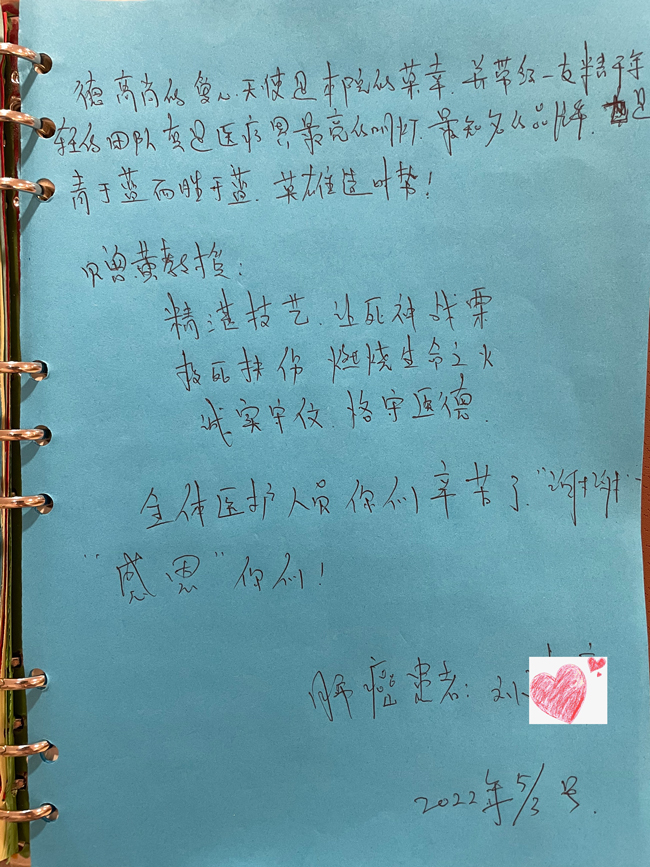 德高尚的复心天使是本院的荣幸.并带领一支精干年
轻的团队真是医疗界最亮的明灯.最知名的品牌.是
青于蓝而胜于蓝.英雄造时势!
贝曾黄教授:
精湛技艺.让死神战栗
救死扶伤 燃烧生命之火
诚实守信.恪守医德.
全体医护人员你们辛苦了."谢谢"
"感恩"你们!
肺癌患者:刘
2022年5/3号.